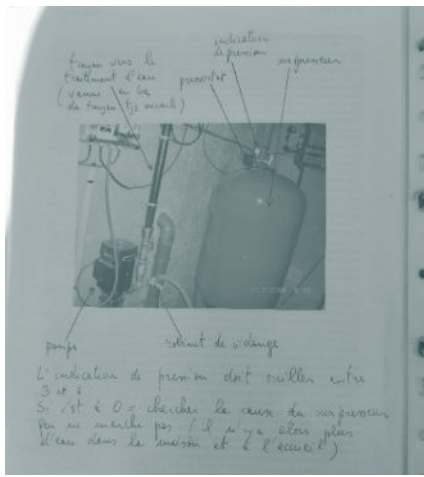 tuyau vers le
traitement d'eau
(vanne en bas
du tuyau tjs ouverte)
indicateur
de pression
pressostat
surpresseur
pompe
robinet de vidange
L'indicateur de pression doit osciller entre
3 et
Si c'est à 0 = chercher la cause du surpresseur
qui ne marche pas (il n'y a alors plus
d'eau dans la maison et à l'accueil)